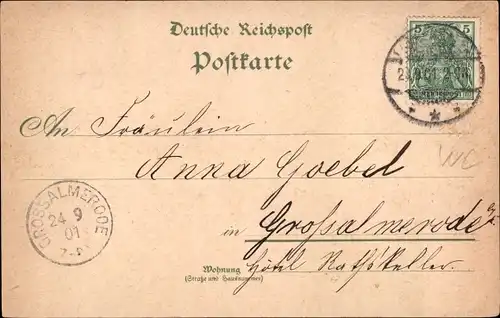 Deutsche Reichspost
Postkarte
5 5
An Fräulein
Anna Goebel
in Großalmerode
GROSSALMERODE
24 9
01
Wohnung
(Straße und Hausnummer)
Hôtel Rathskeller.
WC